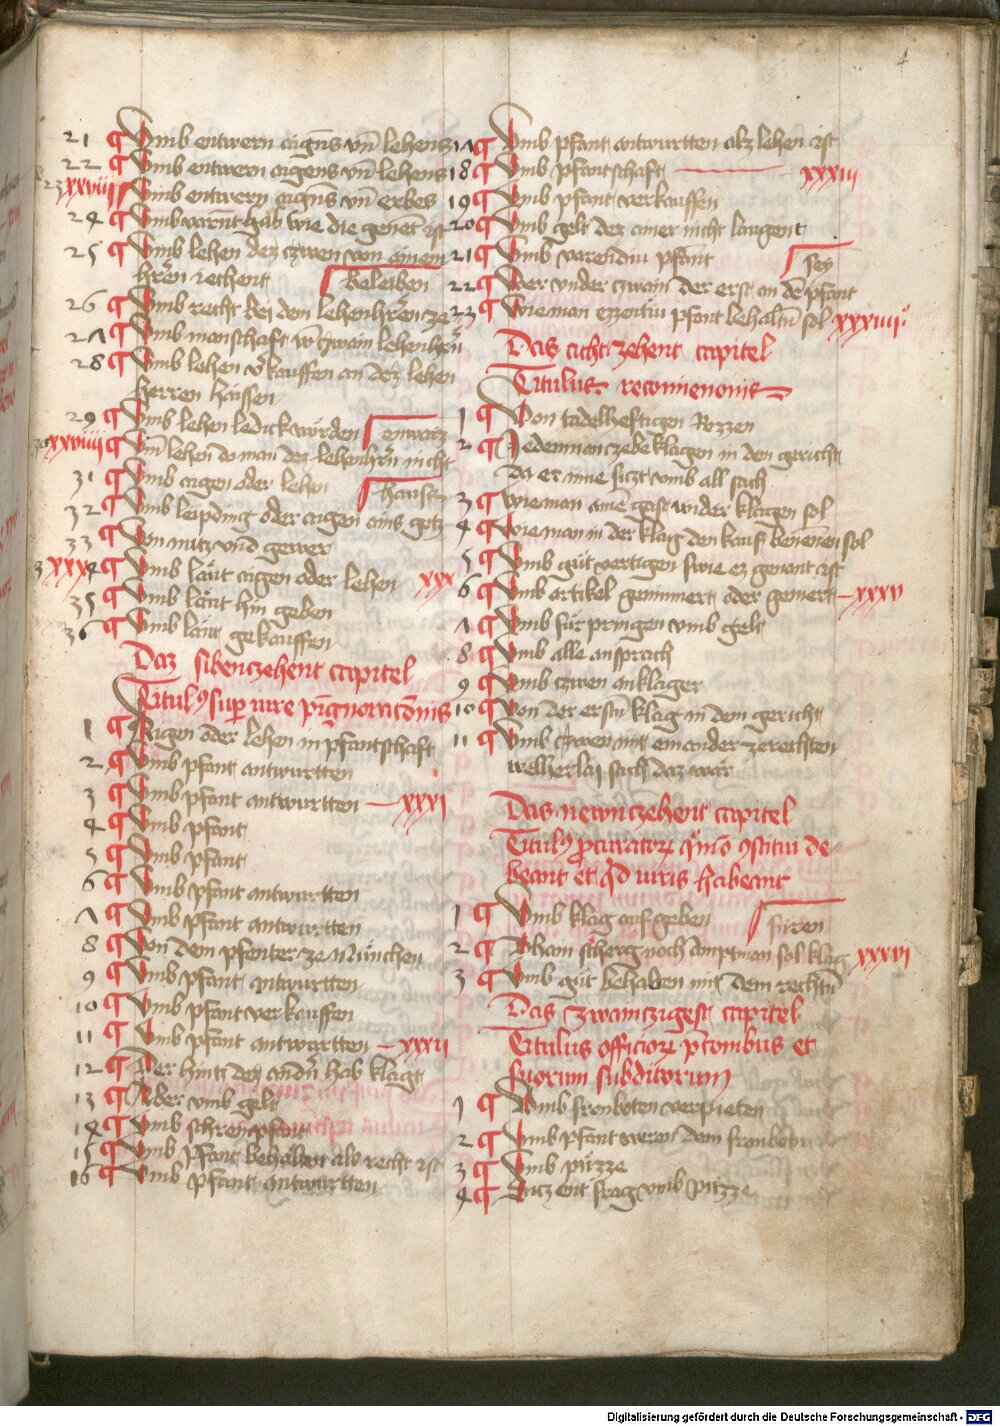 4
21 ¶ Vmb entwern aigens vnd lehens
22 ¶ Vmb entwern aigens vnd lehens
xxviij ¶ Vmb entwern aigens vnd erbes
24 ¶ Vmb varnt hab wie die genent ist
25 ¶ Vmb lehen dez czwen von ainem
hren iechent beleiben
26 ¶ Vmb recht bei dem lehenhren ze
27 ¶ Vmb manschaft von czwain lehenhern
28 ¶ Vmb lehen verkauffen an dez lehen
herren hussen
29 ¶ Vmb lehen ledick wurden
xxviiij ¶ Vmb lehen do man dez lehenhrn nicht
31 ¶ Vmb aigen oder lehen hausz
32 ¶ Vmb leipding oder aigen ains gotz
33 ¶ Von nutz vnd gewer
xxx4 ¶ Vmb läut aigen oder lehen xxx
35 ¶ Vmb läut hin geben
36 ¶ Vmb läut gekauffen
Daz sibenczehent capitel
Titulus super iure pignoraticionis
1 ¶ Aigen oder lehen in pfantschaft
2 ¶ Vmb pfant antwurtten
3 ¶ Vmb pfant antwurtten — xxxi
4 ¶ Vmb pfant
5 ¶ Vmb pfant
6 ¶ Vmb pfant antwurtten
7 ¶ Vmb pfant antwurtten
8 ¶ Von dem pfenter ze München
9 ¶ Vmb pfant antwurtten
10 ¶ Vmb pfant verkauffen
11 ¶ Vmb pfant antwurtten — xxxij
12 ¶ Wer hintz dez andern hab klagt
13 ¶ Oder vmb gelt
14 ¶ Vmb schreinpfant
15 ¶ Vmb pfant behalten als recht ist
16 ¶ Vmb pfant antwurtten
17 ¶ Vmb pfant antwurtten olz lehen ist
18 ¶ Vmb pfantschaft — xxxiij
19 ¶ Vmb pfant verkauffen
20 ¶ Vmb gelt dez ainer nicht laugent
21 ¶ Vmb varendiu pfant sey
22 ¶ Wer vnder czwain der erst an dem pfant
23 ¶ Wie man ezzentiu pfant behalten sol xxxiiij
Daz achtzehent capitel
Titulus
1 ¶ Von tadelheftigen Rozzen
2 ¶ Jederman ze beklagen in dem gericht
Da er inne siczt vmb all sach
3 ¶ Wie man ainen gast wider klagen sol
4 ¶ Wie man in der klag den kauf benennen sol
5 ¶ Vmb gut vertigen swie ez genant ist
6 ¶ Vmb artikel geminnert oder gemert — xxxv
7 ¶ Vmb fürpringen vmb gelt
8 ¶ Vmb alle ansprach
9 ¶ Vmb czwen anklager
10 ¶ Von der ersten klag in dem gericht
11 ¶ Vmb czwen mit ein ander ze rechten
welherlai sach daz wär
Das newnczehent capitel
Titulus procuratorum quomodo constitui de
beant et quid iuris habeant
1 ¶ Vmb klag auf geben füren
2 ¶ Dhain scherg noch amptman sol klag xxxvi
3 ¶ Vmb gut behalten mit dem rechten
Das zwainczigest capitel
Titulus officiorum preconibus et
suorum subditorum
1 ¶ Vmb fronboten verpieten
2 ¶ Vmb pfant weren dem fronboten
3 ¶ Vmb puzze
4 ¶ Aucz ein frag vmb puzze
Digitalisierung gefördert durch die Deutsche Forschungsgemeinschaft - DFG